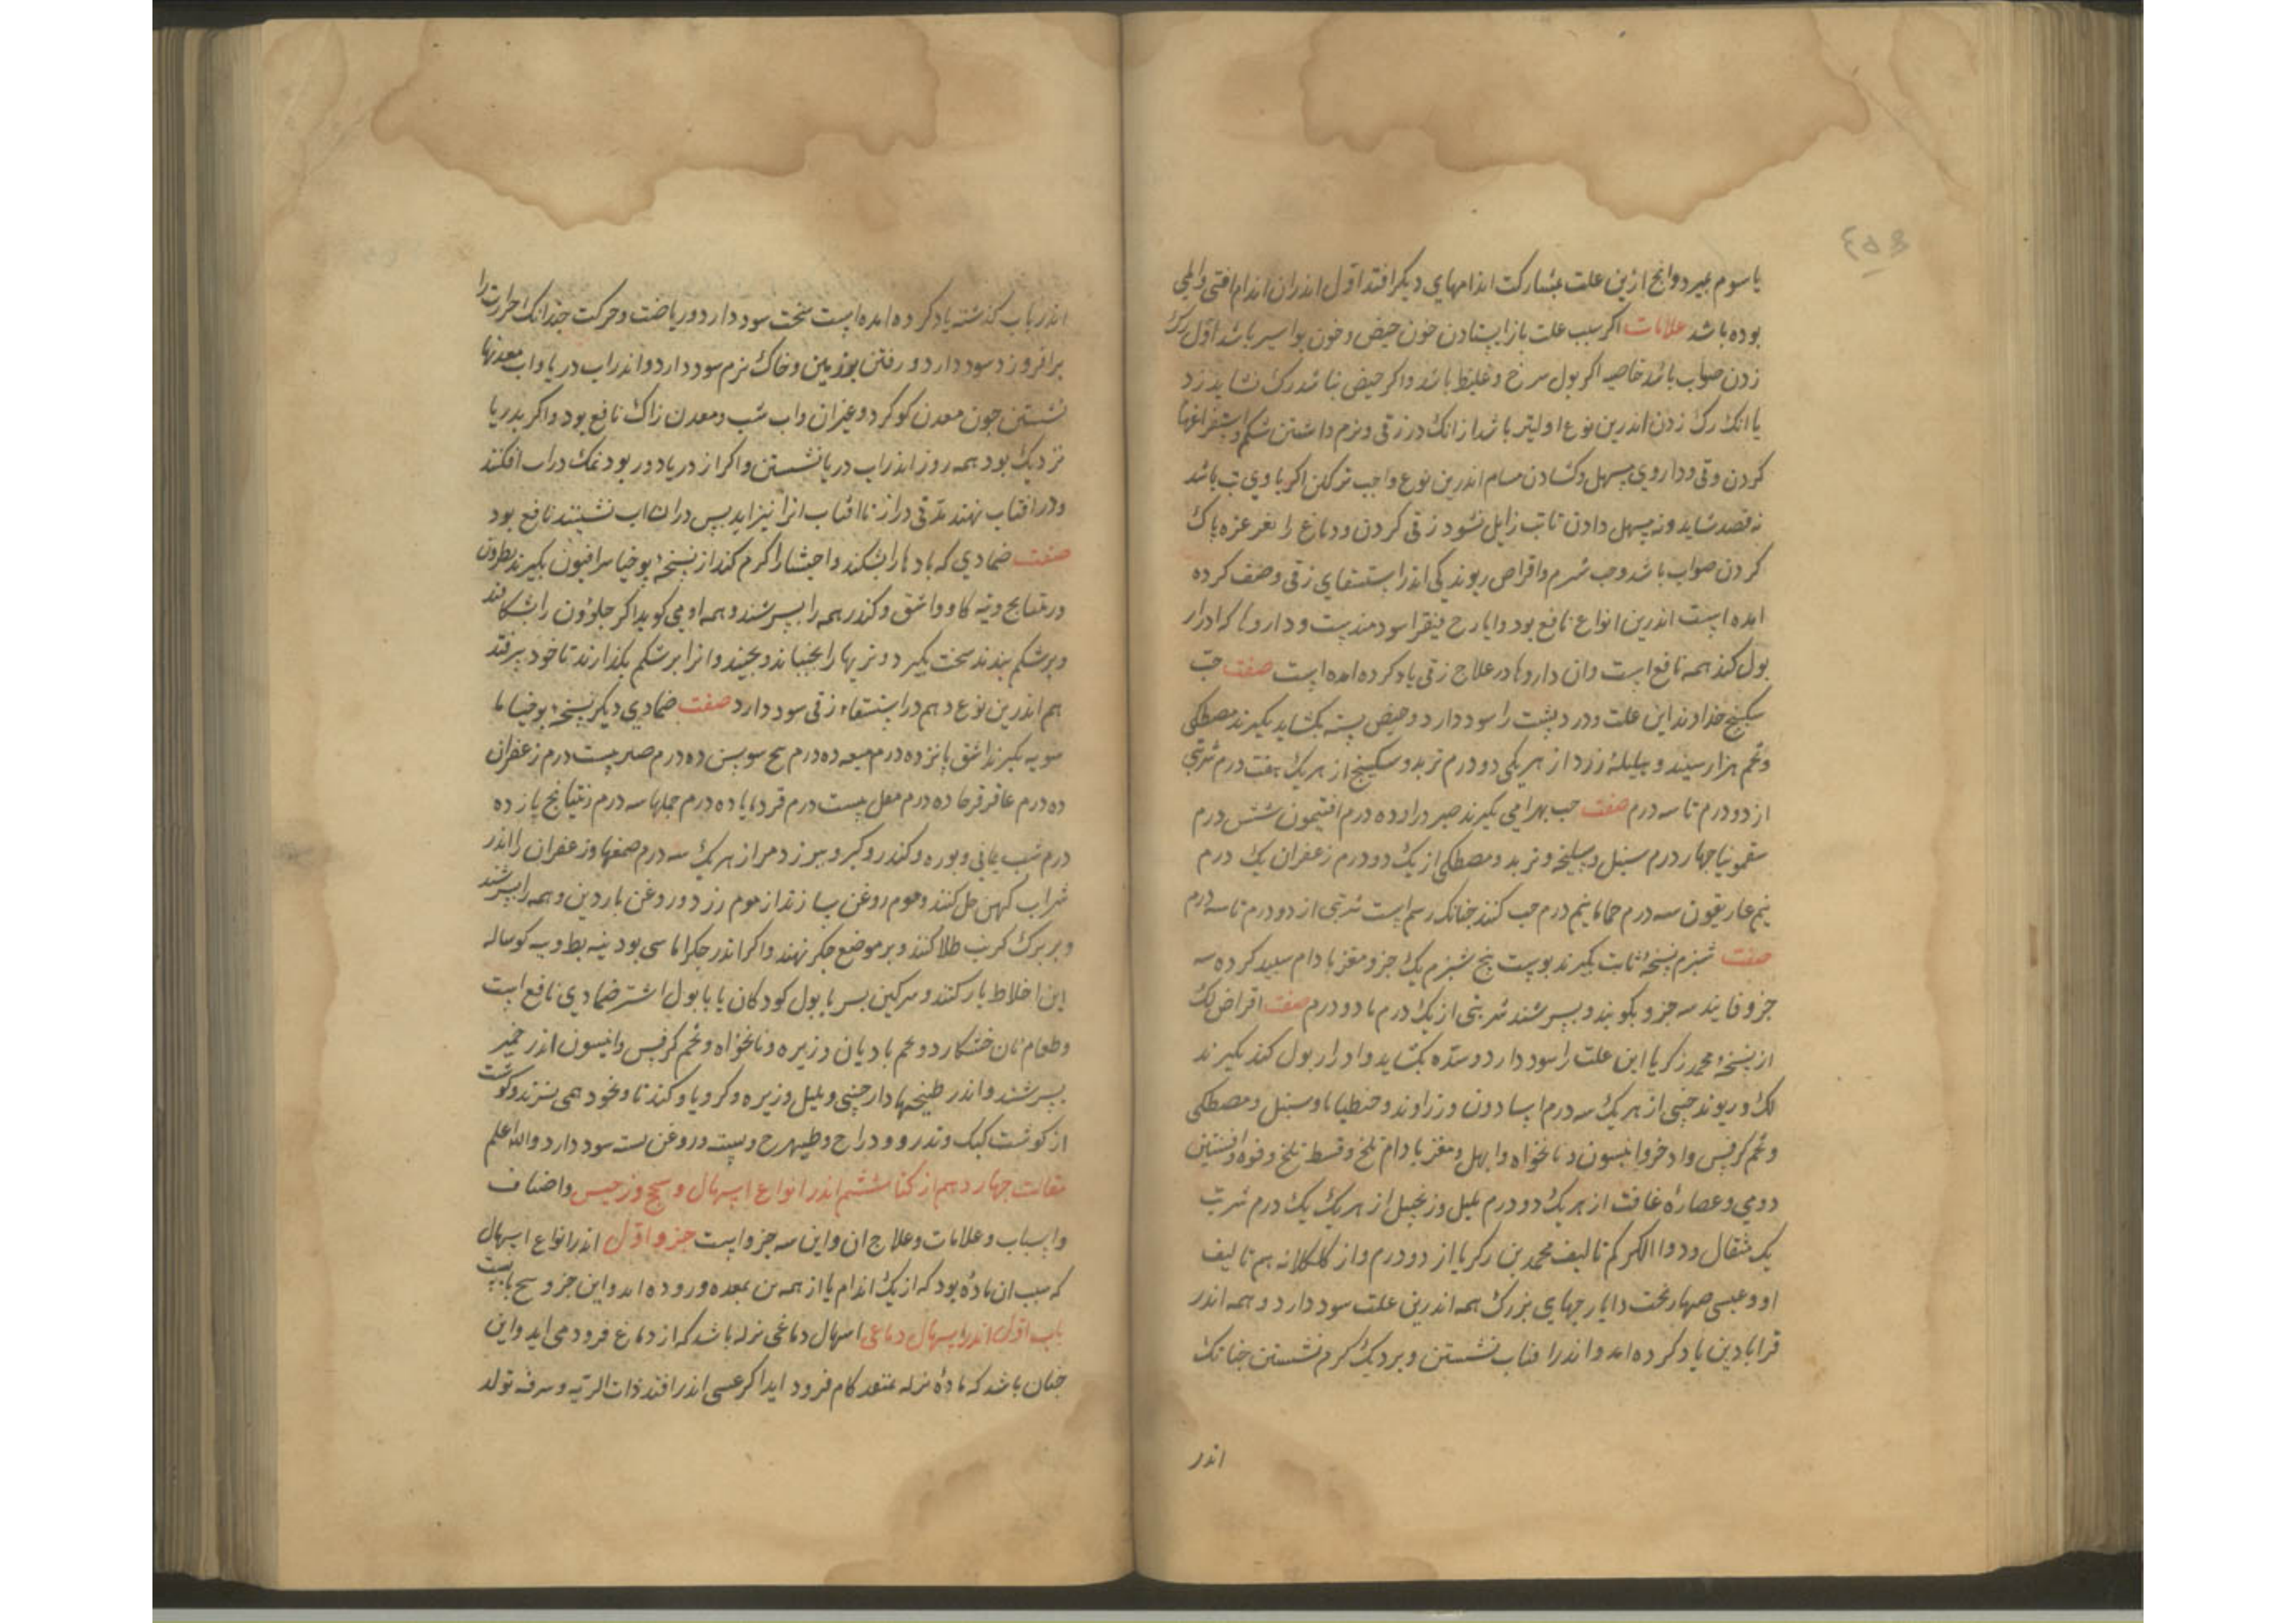 ٤٥٩
یا سوم بمیرد وانچ ازین علت بمشارکت اندامهای دیکر افتد اول اندران اندام افتی والمی
بوده باشد علامات اکر سبب علت باز ایستادن خون حیض وخون بواسیر باشد اول رک
زدن صواب باشد خاصه اکر بول سرخ وغلیظ باشد واکر حیض نباشد رک نشاید زد
یا انک رک زدن اندرین نوع اولیتر باشد از انک در زقی ونرم داشتن شکم واستفراغها
کردن وقی وداروی مسهل وکشادن مسام اندرین نوع واجب تر لکن اکر با وی تب باشد
نه فصد شاید ونه مسهل دادن تا تب زایل نشود زقی کردن ودماغ را بغرغره پاک
کردن صواب باشد وحب شبرم واقراص ریوند کی اندر استسقای زقی وصف کرده
امده است اندرین انواع نافع بود وایارج فیقرا سودمندست وداروها که ادرار
بول کند همه نافع است وان داروها در علاج زقی یاد کرده امده است صفت حب
سکبینج خداوند این علت ودرد پشت را سود دارد وحیض بسته بکشاید بکیرند مصطکی
وتخم هزار سپند وهلیلهٔ زرد از هر یکی دو درم تربد وسکبینج از هر یک هفت درم شربتی
از دو درم تا سه درم صفت حب بهرامی بکیرند صبر دراوده درم افتیمون شش درم
سقمونیا چهار درم سنبل وسلیخه وتربد ومصطکی از یک دو درم زعفران یک درم
نیم غاریقون سه درم حماما نیم درم حب کنند چنانک رسم است شربتی از دو درم تا سه درم
صفت شبرم نسخهٔ ثابت بکیرند پوست بیخ شبرم یک جزو مغز بادام سپید کرده سه
جزو فانید سه جزو بکوبند وبسرشند شربتی از یک درم تا دو درم صفت اقراص لک
از نسخهٔ محمد زکریا این علت را سود دارد وسده بکشاید وادرار بول کند بکیرند
لک وریوند چینی از هر یک سه درم اسارون وزراوند وجنطیانا وسنبل ومصطکی
وتخم کرفس واذخر وانیسون ونانخواه وابهل ومغز بادام تلخ وقسط تلخ وفوه وافسنتین
رومی وعصارهٔ غافت از هر یک دو درم پلپل وزنجبیل از هر یک یک درم شربت
یک مثقال ودوا الکرکم تالیف محمد بن زکریا از دو درم واز کلکلانه هم تالیف
او وعیسی صهاربخت وایارجهای بزرک همه اندرین علت سود دارد وهمه اندر
قرابادین یاد کرده امد واندر افتاب نشستن وبر ریک کرم نشستن چنانک
اندر
اندر باب کذشته یاد کرده امده است سخت سود دارد وریاضت وحرکت چندانک حرارت را
برافروزد سود دارد ورفتن بر زمین وخاک نرم سود دارد واندر اب دریا واب معدنها
نشستن چون معدن کوکرد وغیر ان واب شب ومعدن زاک نافع بود واکر بدریا
نزدیک بود همه روز اندر اب دریا نشستن واکر از دریا دور بود نمک دراب افکنند
ودر افتاب نهند مدتی دراز تا افتاب انرا بپزاید پس دران اب نشینند نافع بود
صفت ضمادی که بادها را بشکند واحشا را کرم کند از نسخهٔ یوحنا سرافیون بکیرند نطرون
وراتینج وپیه کاو واشق وکندر همه را بسرشند وهم او می کوید اکر حلزون را بشکافند
وبر شکم بندند سخت بکیرد وتریها را بجنباند وبچیند وانرا بر شکم بکذارند تا خود بیرفتد
هم اندرین نوع وهم در استسقاء زقی سود دارد صفت ضمادی دیکر نسخهٔ یوحنا ما
سویه بکیرند اشق پانزده درم میعه ده درم بیخ سوسن ده درم صبر بیست درم زعفران
ده درم عاقرقرحا ده درم مقل بیست درم قردمانا ده درم حماما سه درم زیتیانج پانزده
درم شب یمانی وبوره وکندر وکبر وبیرزد مر از هر یک سه درم صمغها وزعفران را اندر
شراب کهن حل کنند وموم روغن سازند از موم زرد وروغن ناردین وهمه را بسرشند
وبر برک کرنب طلا کنند وبر موضع جکر نهند واکر اندر جکر اماسی بود پیه بط وپیه کوساله
این اخلاط یار کنند وسرکین بز با بول کودکان یا با بول اشتر ضمادی نافع است
وطعام نان خشکار وتخم بادیان وزیره ونانخواه وتخم کرفس وانیسون اندر خمیر
بسرشند واندر طبیخها دارچینی وپلپل وزیره وکرویا وکندنا ونخود همی پزند وکوشت
از کوشت کبک وتدرو ودراج وطیهوج وپسته وروغن پسته سود دارد والله اعلم
مقالت چهاردهم از کتاب ششم اندر انواع اسهال وسحج وزحیر واصناف
واسباب وعلامات وعلاج ان واین سه جزو است جزو اول اندر انواع اسهال
که سبب ان مادهٔ بود که از یک اندام یا از همه تن بمعده وروده اید واین جزو پنج بابست
باب اول اندر اسهال دماغی اسهال دماغی نزله باشد که از دماغ فرود می اید واین
چنان باشد که مادهٔ نزله بمنفذ کام فرود اید اکر بقصبه اندر افتد ذات الریه وسرفه تولد